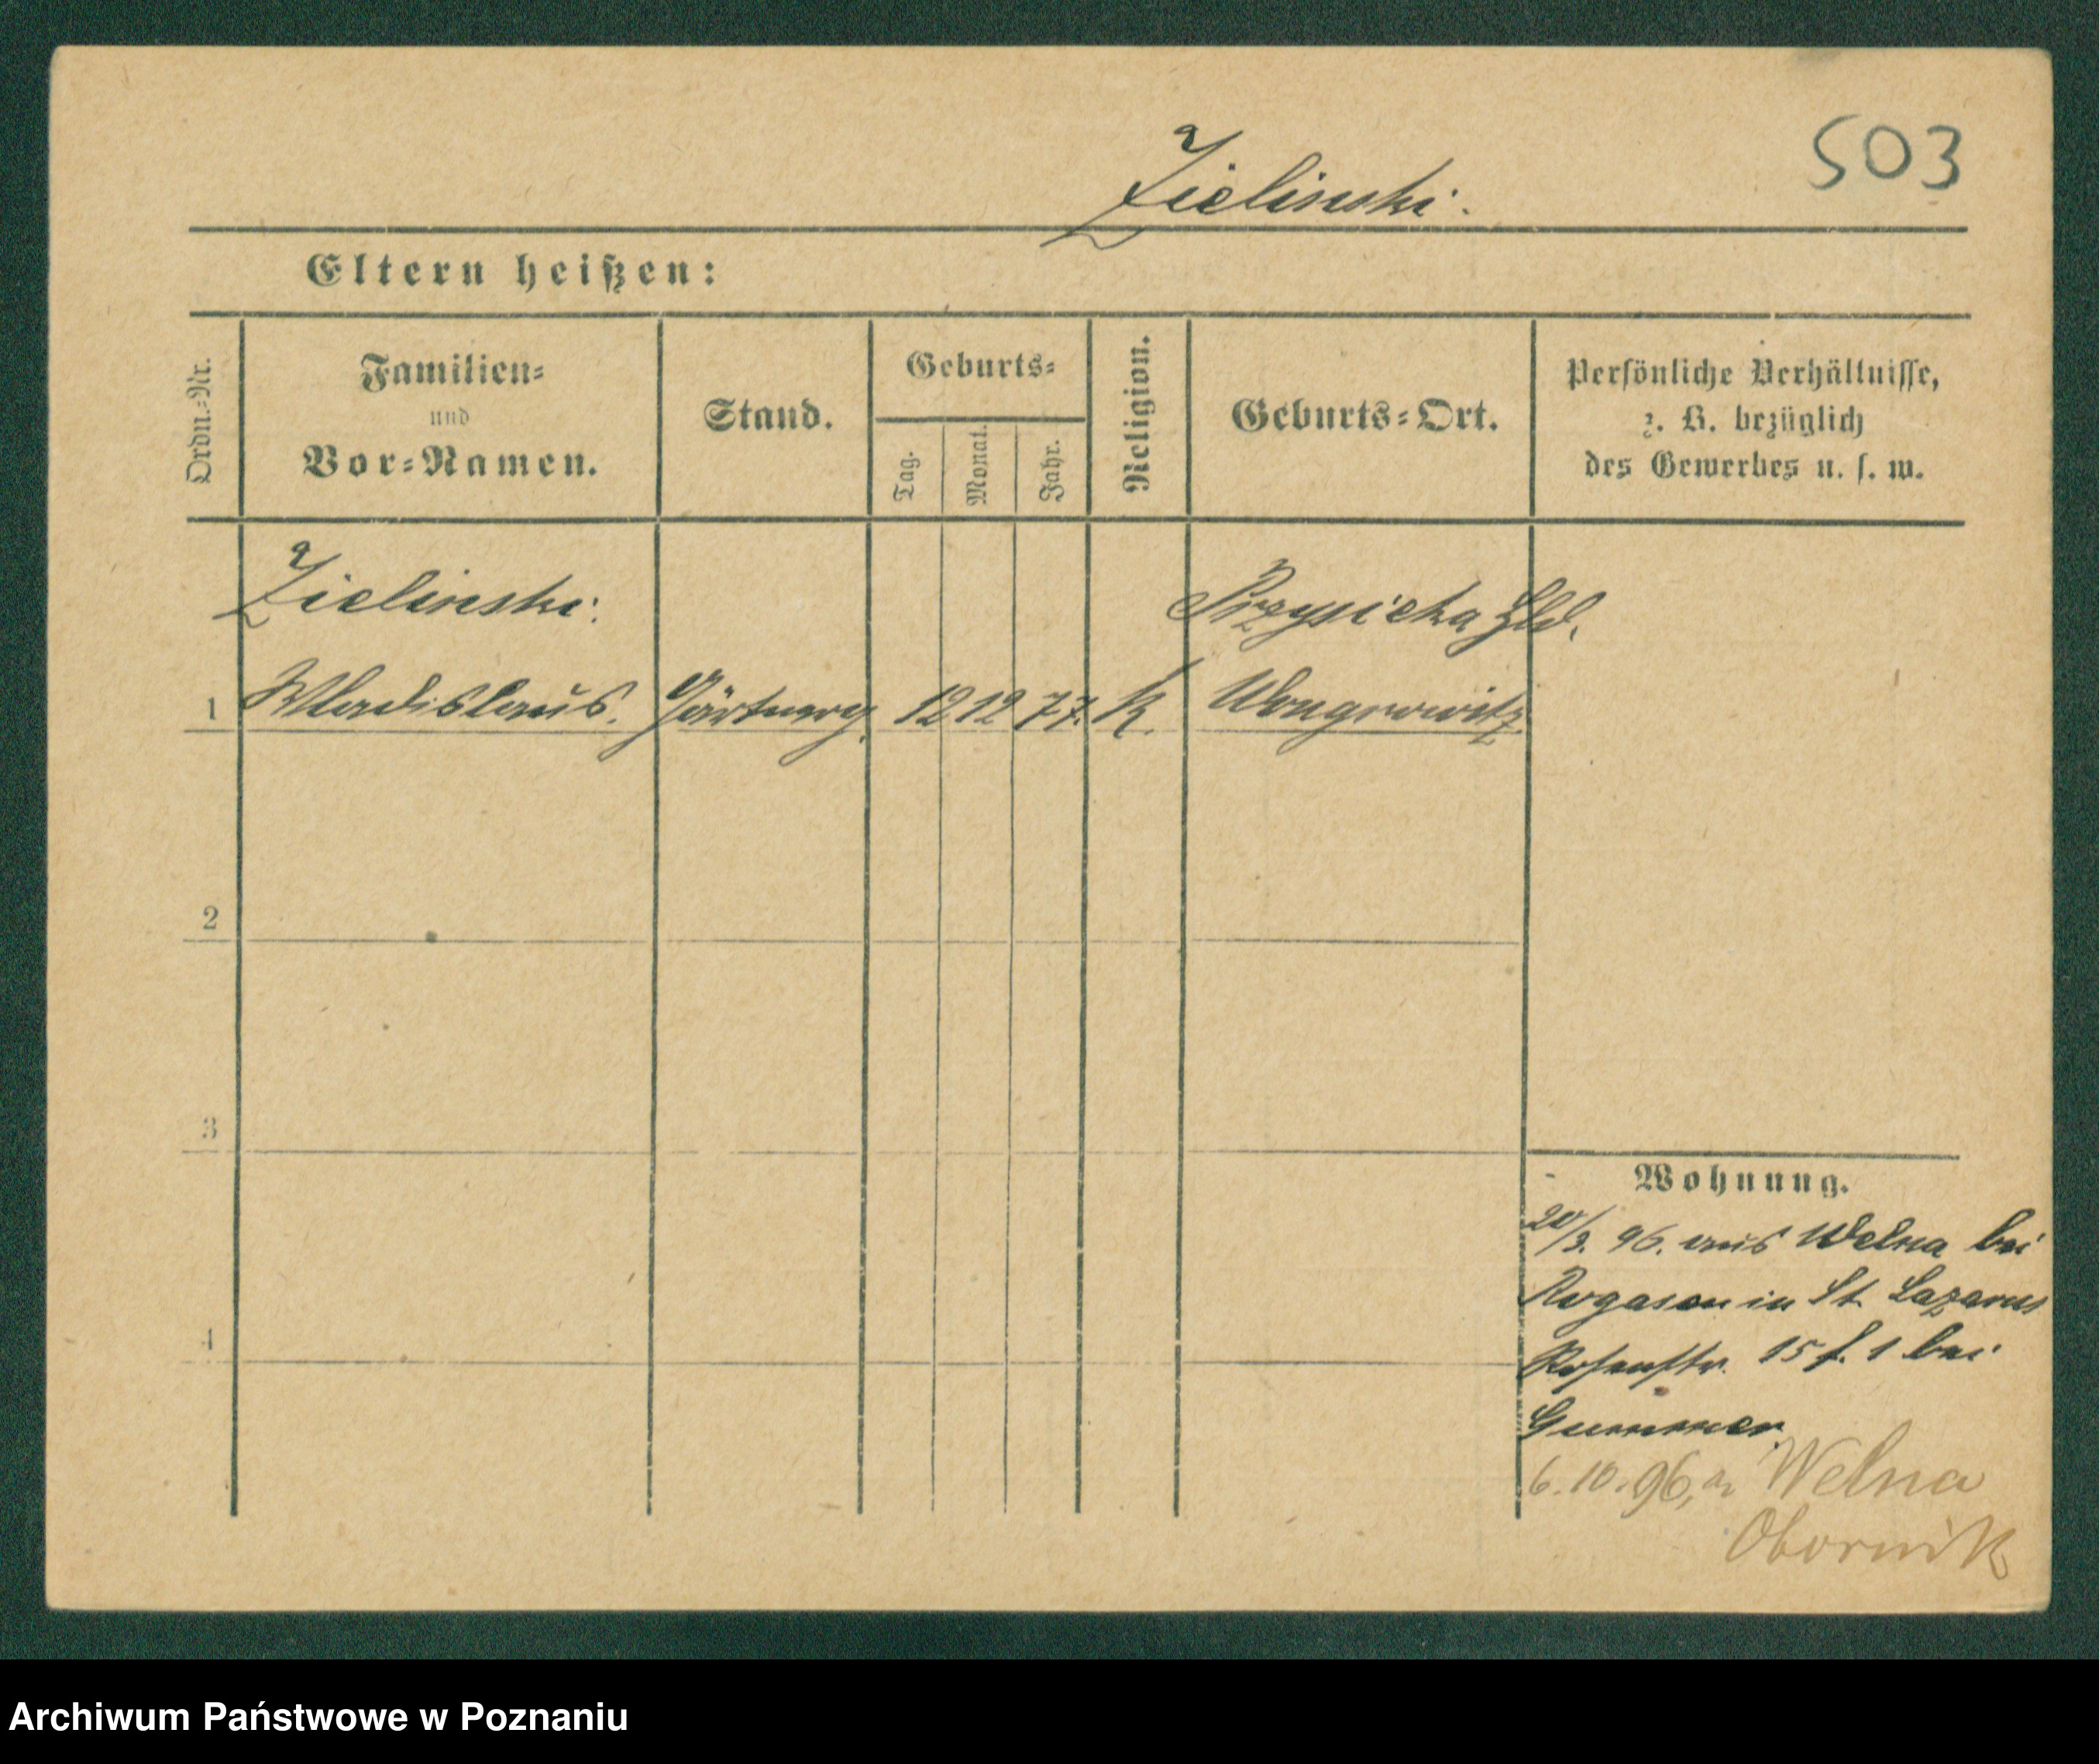 503
Zielinski.
Eltern heißen:
Ordn.-Nr.
Familien-
und
Vor-Namen.
Stand.
Geburts-
Tag.
Monat.
Jahr.
Religion.
Geburts-Ort.
Persönliche Verhältnisse,
z. B. bezüglich
des Gewerbes u. s. w.
Zielinski. Przysieka Hld.
1 Wladislaus. 12 12 77. K. Wongrowitz
2
3
4
Wohnung.
20/3. 96. aus Welna bei
Rogasen in St. Lazarus
Rosenstr. 15 1 bei
Gummer
6.10.96, n Welna
Obornik
Archiwum Państwowe w Poznaniu